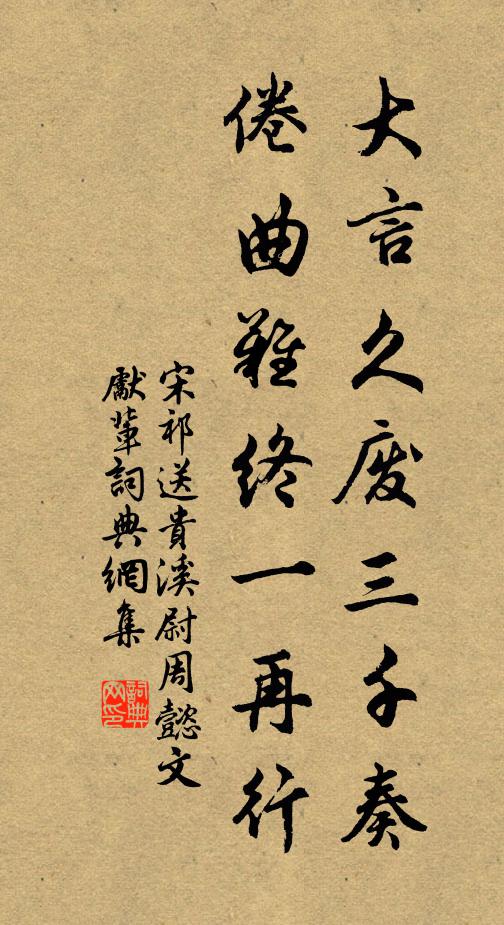 大言久废三千奏
倦曲難终一再行
宋祁送貴溪尉周懿文
獻輩詞典網集
詞典网印